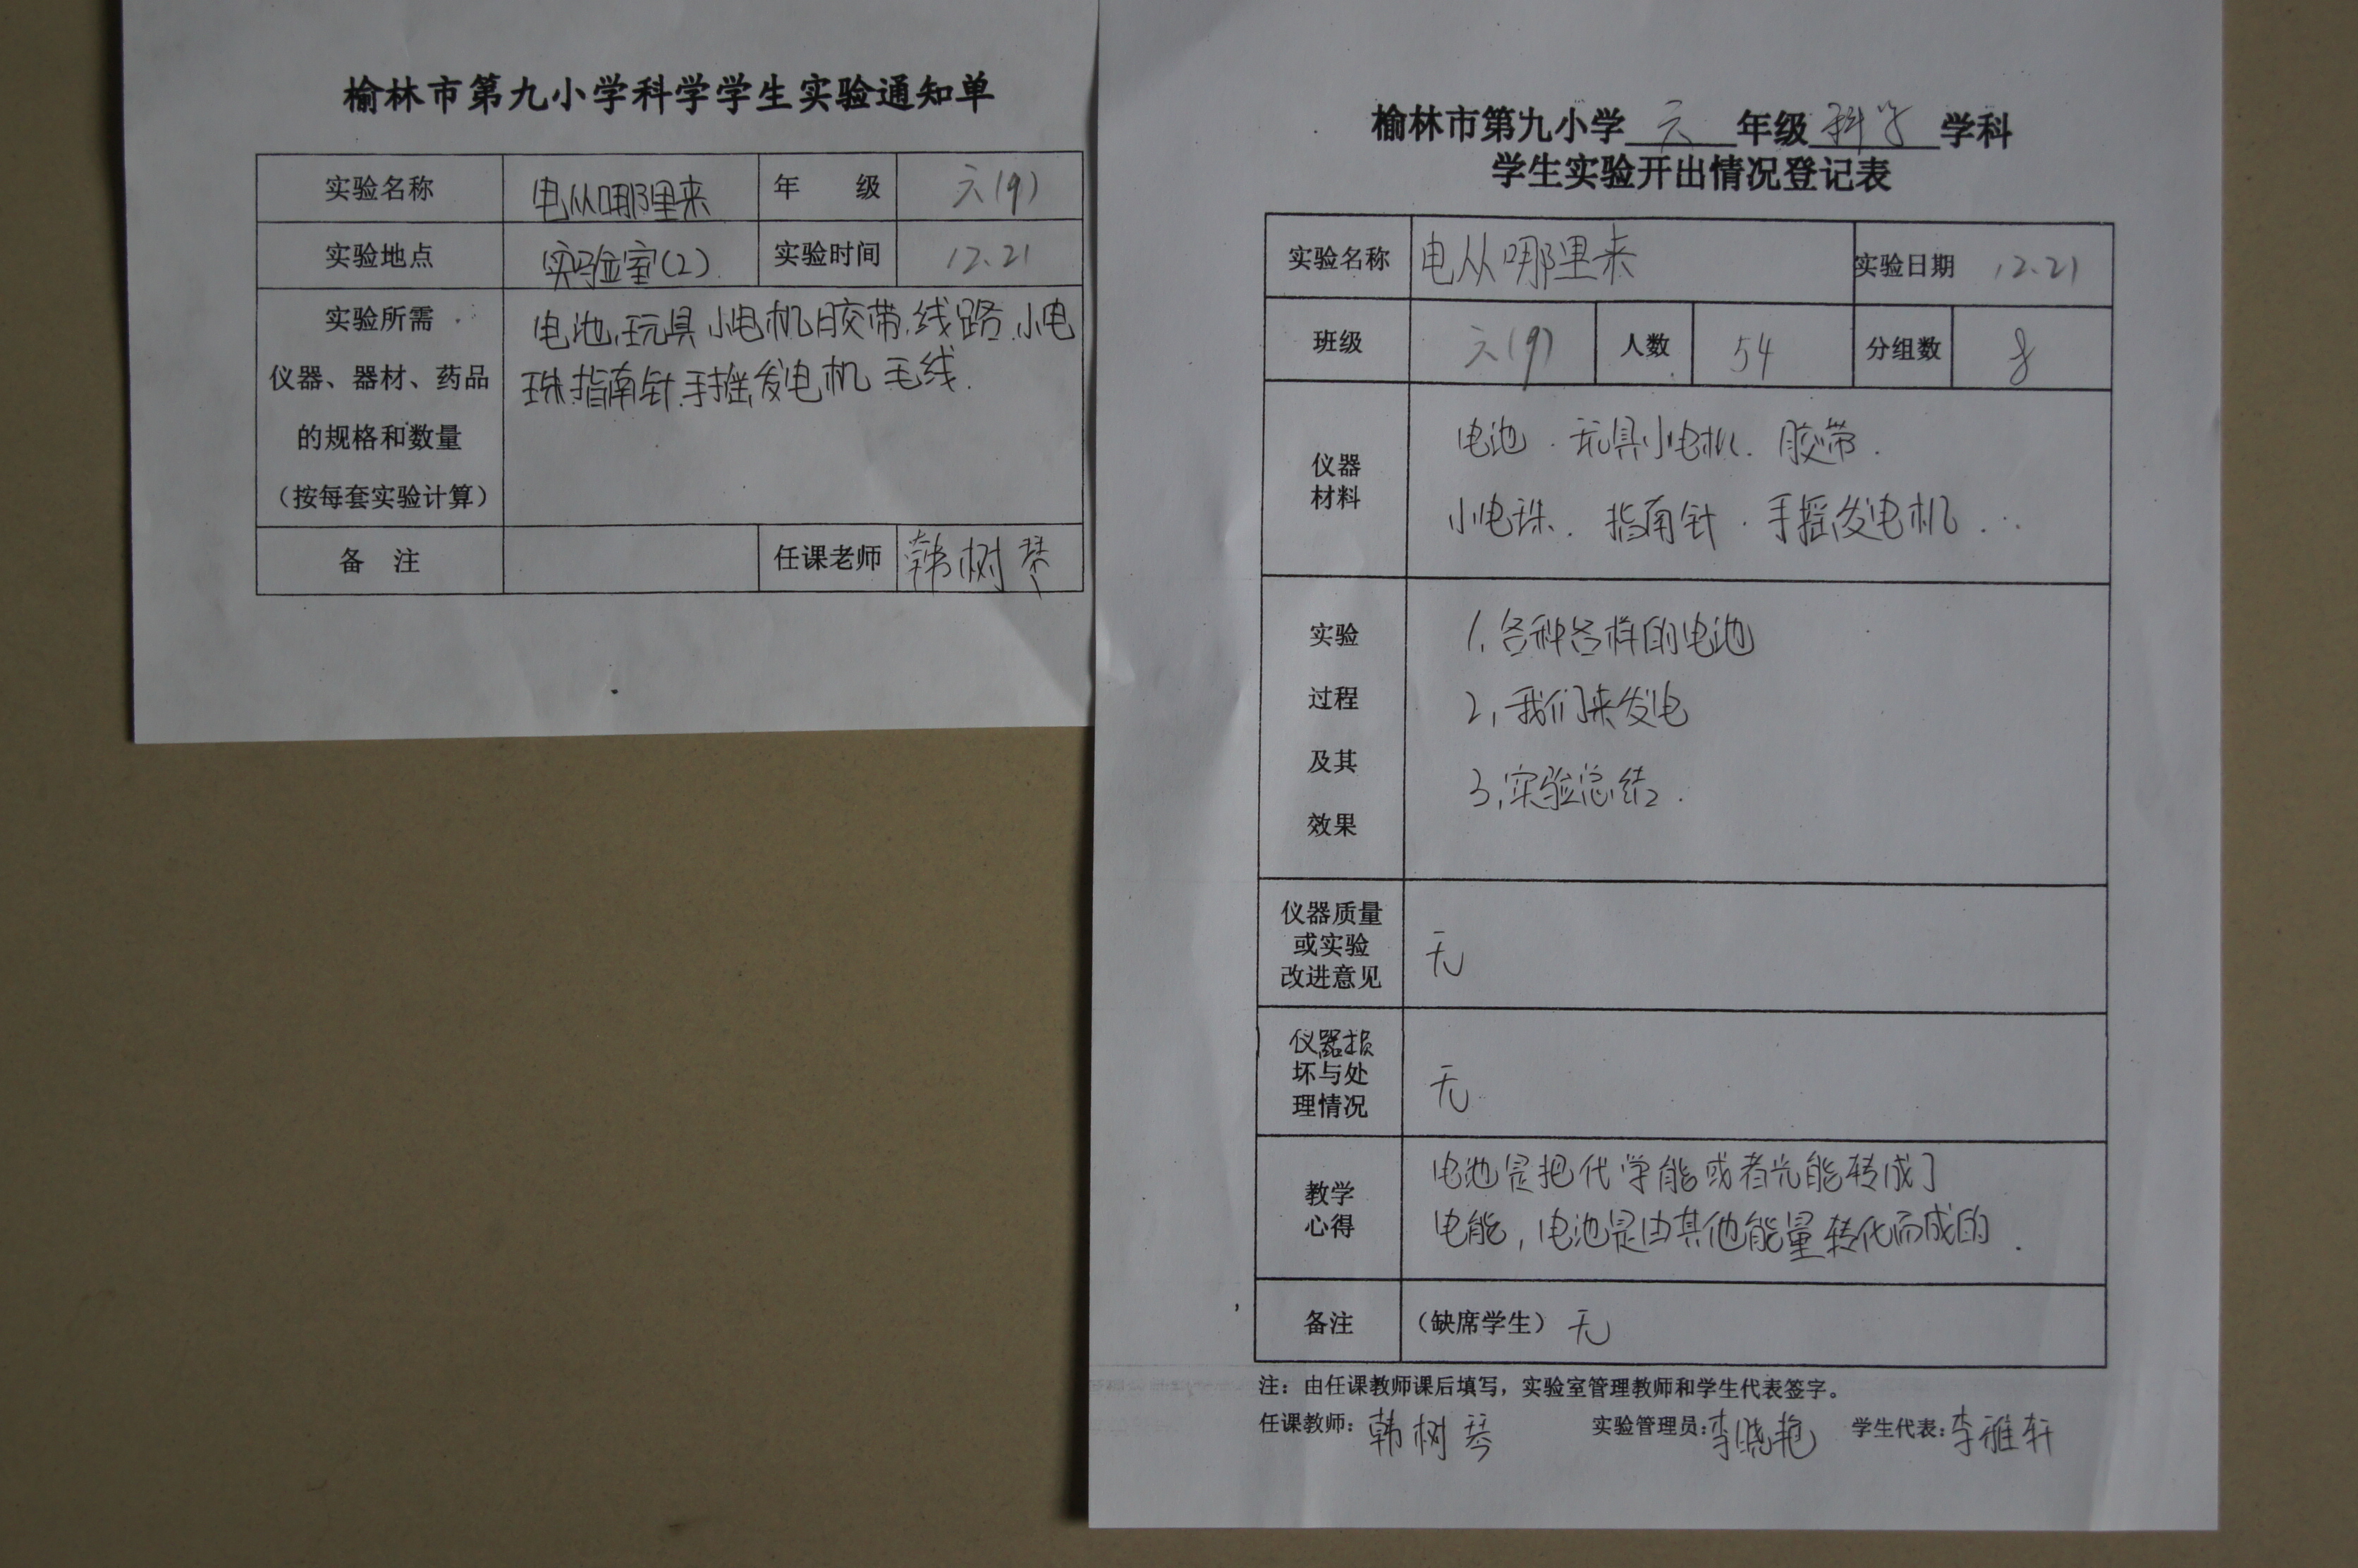 榆林市第九小学科学学生实验通知单
实验名称 电从哪里来 年 级 六(9)
实验地点 实验室(2). 实验时间 12.21
实验所需
仪器、器材、药品
的规格和数量
(按每套实验计算)
电池.玩具小电机胶带.线路.小电
珠.指南针.手摇发电机 毛线.
备 注 任课老师 韩树琴
榆林市第九小学 六 年级 科学 学科
学生实验开出情况登记表
实验名称 电从哪里来 实验日期 12.21
班级 六(9) 人数 54 分组数 8
仪器
材料
电池.玩具小电机.胶带.
小电珠.指南针.手摇发电机...
实验
过程
及其
效果
1.各种各样的电池
2,我们来发电
3,实验总结.
仪器质量
或实验
改进意见
无
仪器损
坏与处
理情况
无
教学
心得
电池是把代学能或者光能转成了
电能,电池是由其他能量转化而成的.
备注 (缺席学生) 无
注:由任课教师课后填写,实验室管理教师和学生代表签字。
任课教师:韩树琴 实验管理员:李晓艳 学生代表:李雅轩